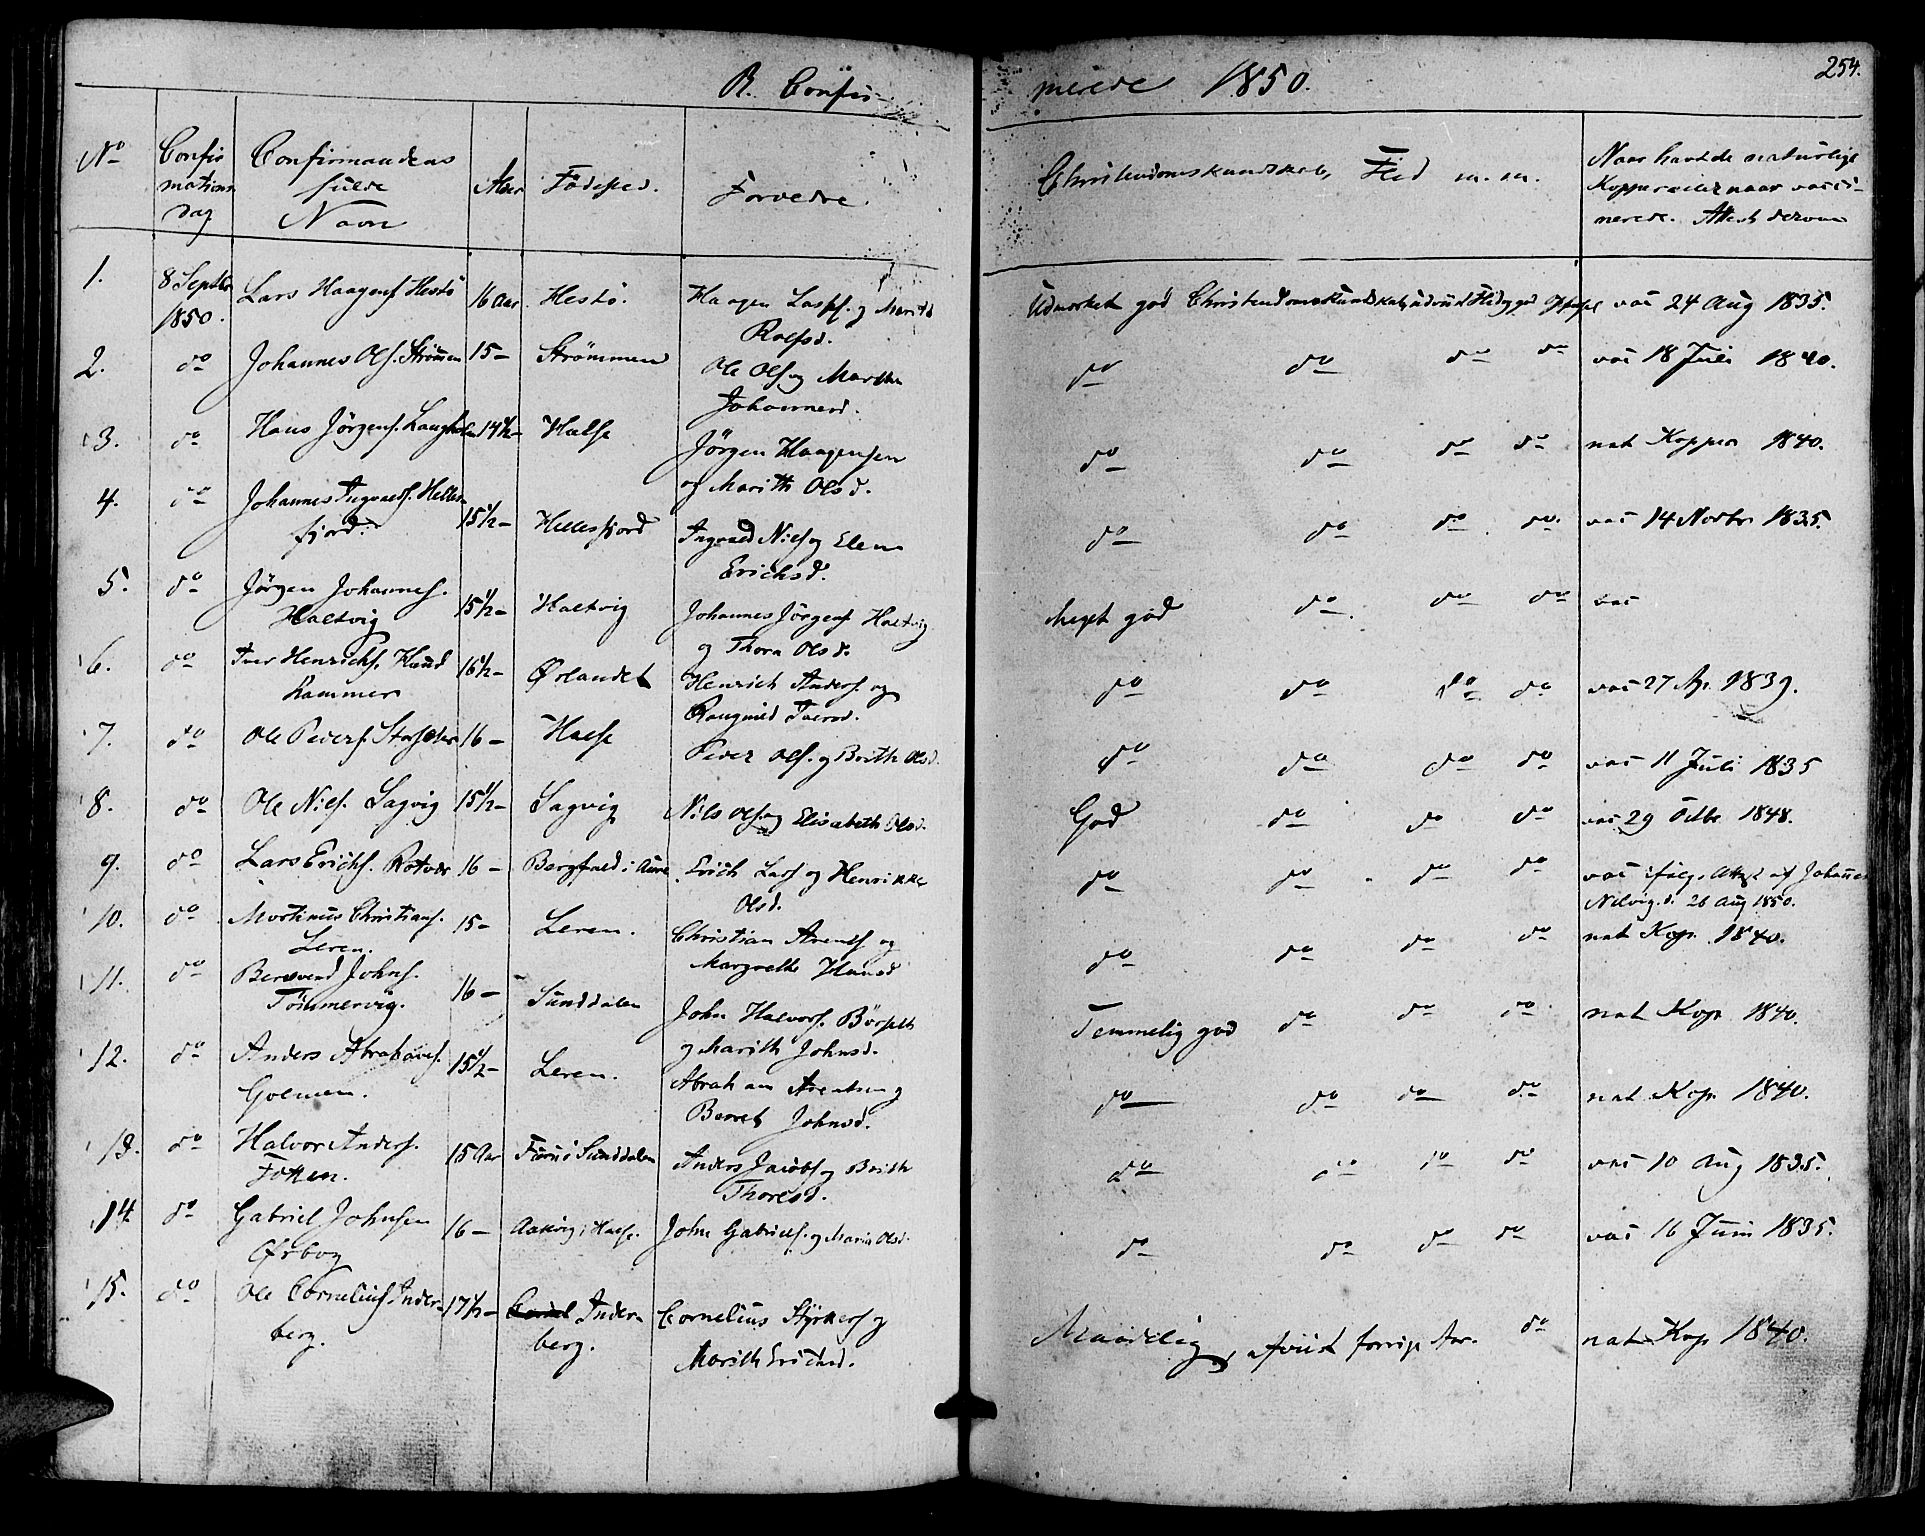 B. Confir-
merede 1850.
254.
No
Confir
mations
Dag
Confirmandens
fulde
Navn
Alder
Födested.
Forældre
Christendomskundskab, Flid m. m.
Naar havt de naturlige
Kopper eller naar vacci-
nerede. Attest derom
1. 8 Septbr 1850. Lars Haagens. Hestö 16 Aar Hestö. Haagen Larss. og Marith
Rolfsd. Udmærket god Christendomskundskab, udviist Flid og god Opførsel vac 24 Aug 1835.
2. do Johannes Ols. Strömmen 15- Strömmen Ole Ols. og Marthe
Johannesd. do do do do vac 18 Juli 1840.
3. do Hans Jörgens. Langholm 14½- Halse Jörgen Haagensen
og Marith Olsd. do do do do nat Kopper 1840.
4. do Johannes Ingvalds. Helles-
fjord. 15½- Hellesfjord Ingvald Niels. og Elen
Erichsd. do do do do. vac 14 Novbr 1835.
5. do Jörgen Johannes.
Haltvig 15½- Haltvig Johannes Jörgens. Haltvig
og Thora Olsd. Meget god do do do vac
6. do Iver Henrichs. Kund
Kammer 16½- Ørlandet Henrich Anders. og
Raugnild Iversd. do do do do vac 27 Ap. 1839.
7. do Ole Peders. 16- Halse Peder Ols. og Berith Olsd. do do do do vac 11 Juli 1835
8. do Ole Niels. Sagvig 15½- Sagvig Nils Ols. og Elisabeth Olsd. God do do do vac 29 Octbr 1848.
9. do Lars Erichs. Rotvær 16- i Aure Erich Lars. og Henrikke
Olsd. do do do do vac ifølg. Attest af Johannes
26 Aug 1850.
10. do Mortinus Christians.
Leren. 15- Leren. Christian Arends. og
Margrethe Hansd do do do do nat Kop. 1840.
11. do Beresvend Johns.
Tömmervig. 16- Sunddalen John Halvors. Börseth
og Marith Johnsd. Temmelig god do do do nat Kop 1840.
12. do Anders Abrahams.
Golmen. 15½- Leren. Abraham Arentsen og
Berret Johnsd. do do do do nat Kop. 1840.
13. do Halvor Anders.
Totten. 15 Aar i Sunddalen Anders Jacobs. og Brith
Thoresd. do do do do vac 10 Aug 1835.
14 do Gabriel Johnsen
Ørbog 16- Aakvig i Halse. John Gabriels. og Maria Olsd. do do do do vac 16 Juni 1835.
15. do Ole Cornelius. Inder-
berg. 17½- Inder-
berg. Cornelius Styrkers. og
Marith Erichsd. Maadelig, afviist forrige Aar. do nat Kop 1840.